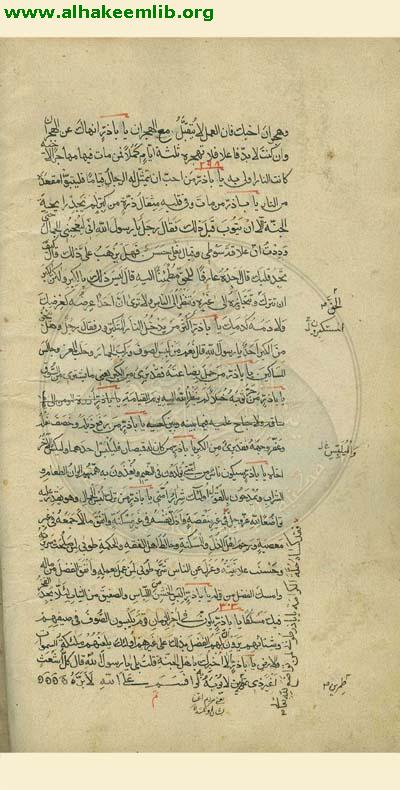 www.alhakeemlib.org
وهجران اخيك فان العمل لا يتقبل مع الهجران يا باذر انهاك عن الهجران
وان كنت لا بد فاعلا فلا تهجره ثلثة ايام كملا فمن مات فيها مهاجرا لاخيه
كانت النار اولى به يا باذر من احب ان يتمثل له الرجال قياما فليتبوا مقعده
من النار يا باذر من مات وفي قلبه مثقال ذرة من كبر لم يجد رايحة
الجنة الا ان يتوب قبل ذلك فقال رجل يا رسول الله اني ليعجبني الجمال حتى
وددت ان علاقة سوطي وقبال نعلي حسن فهل يرهب على ذلك قال كيف
تجد قلبك قال اجده عارفا للحق مطمئنا اليه قال ليس ذلك بالكبر ولكن الكبر
ان تترك وتتجاوزه الى غيره وتنظر الى الناس ولا ترى ان احدا عرضه كعرضك
ولا دمه كدمك يا باذر اكثر من يدخل النار المتكبرون فقال رجل وهل ينجو
من الكبر احد يا رسول الله قال نعم من لبس الصوف وركب الحمار وحلب العنز وجالس
المساكين يا باذر من حمل بضاعته فقد برئ من الكبر يعني ما يشتري من السوق
يا باذر من جر ثوبه خيلاء لم ينظر الله اليه يوم القيامة يا باذر ازرة المومن الى
ساقيه ولا جناح عليه فيما بينه وبين كعبيه يا باذر من رفع ذيله وخصف نعله
وعفر وجهه فقد برئ من الكبر يا باذر من كان له قميصان فليلبس احدهما وليكس الاخر
اخاه يا باذر سيكون ناس من امتي يولدون في النعيم ويغذون به همتهم الوان الطعام و
الشراب ويمدحون بالقول اولئك شرار امتي يا باذر من ترك لبس الجمال وهو يقدر عليه
تواضعا لله عز وجل في غير منقصة واذل نفسه في غير مسكنة وانفق مالا جمعه في غير
معصية ورحم اهل الذل والمسكنة وخالط اهل الفقه والحكمة طوبى لمن
وحسنت علانيته وعزل عن الناس شره طوبى لمن عمل بعلمه وانفق الفضل من ماله
وامسك الفضل من قوله يا باذر البس الخشن من اللباس والصفيق من الثياب لئلا يجد
فيك مسلكا يا باذر يكون في اخر الزمان قوم يلبسون الصوف في صيفهم
وشتائهم يرون ان لهم الفضل بذلك على غيرهم اولئك يلعنهم ملئكة السموات
والارض يا باذر الا اخبرك باهل الجنة قلت بلى يا رسول الله قال كل اشعث
اغبر ذي لا يوبه به لو اقسم على الله لابره
الحق
المستكبرون
طمرين